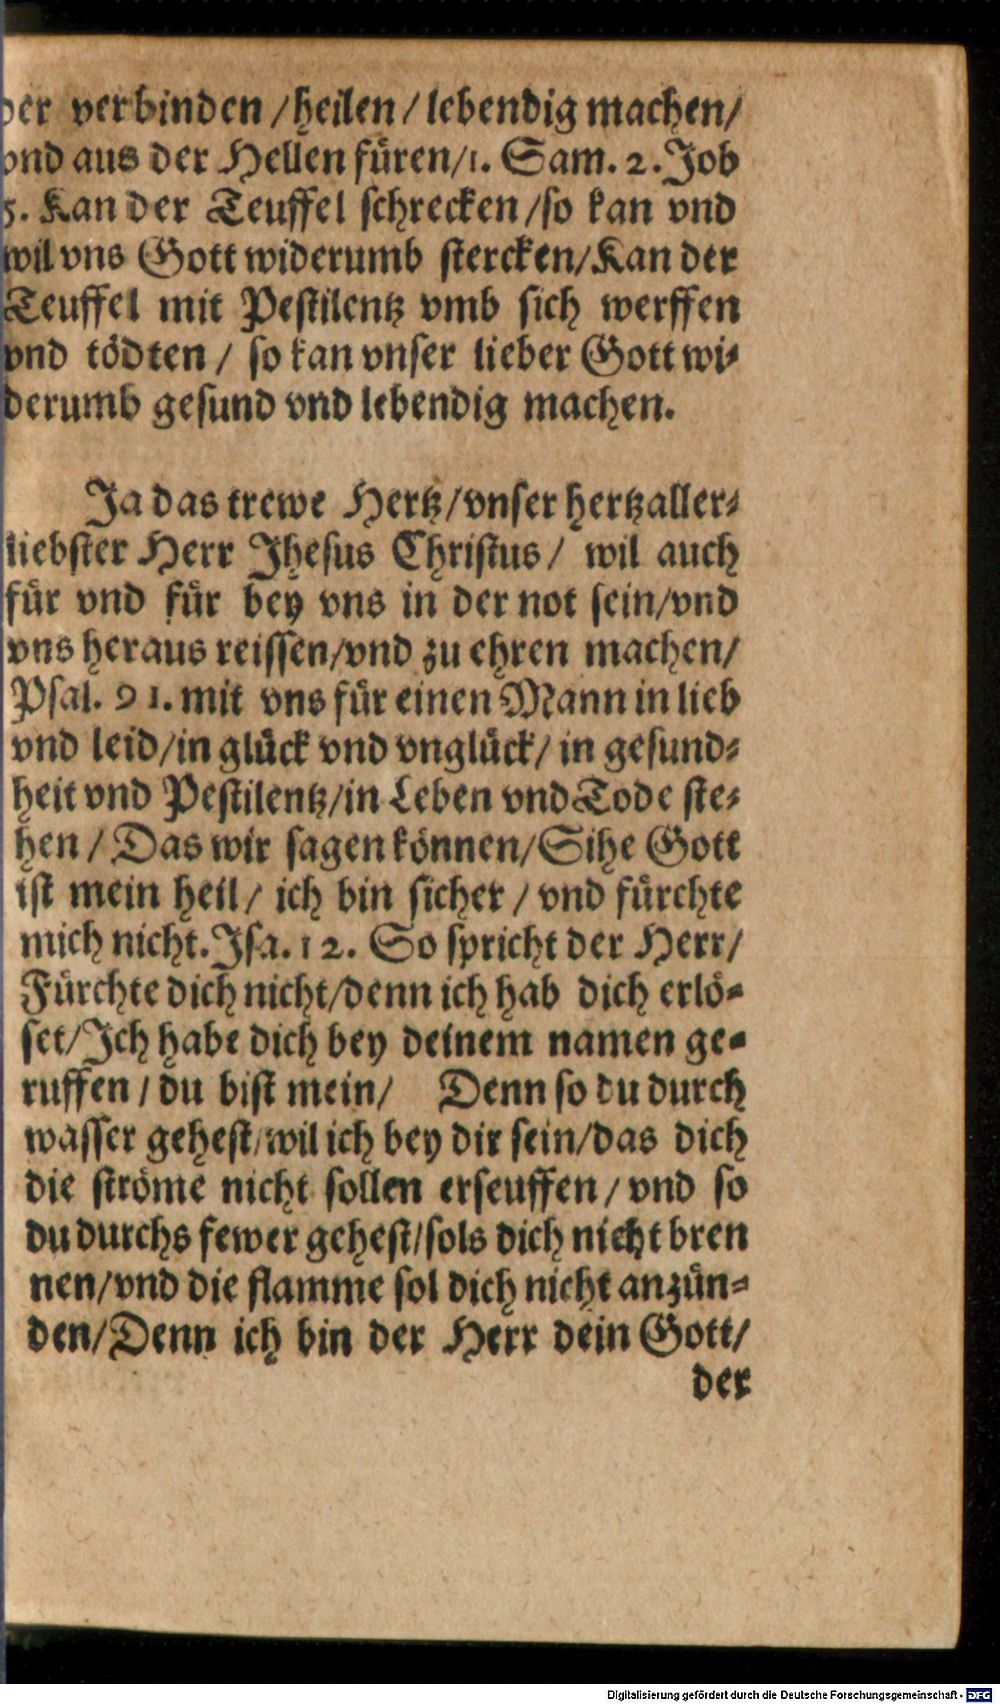 der verbinden / heilen / lebendig machen /
vnd aus der Hellen füren / 1. Sam. 2. Job
5. Kan der Teuffel schrecken / so kan vnd
wil vns Gott widerumb stercken / Kan der
Teuffel mit Pestilentz vmb sich werffen
vnd tödten / so kan vnser lieber Gott wi-
derumb gesund vnd lebendig machen.
Ja das trewe Hertz / vnser hertzaller-
liebster Herr Jhesus Christus / wil auch
für vnd für bey vns in der not sein / vnd
vns heraus reissen / vnd zu ehren machen /
Psal. 91. mit vns für einen Mann in lieb
vnd leid / in glück vnd vnglück / in gesund-
heit vnd Pestilentz / in Leben vnd Tode ste-
hen / Das wir sagen können / Sihe Gott
ist mein heil / ich bin sicher / vnd fürchte
mich nicht. Jsa. 12. So spricht der Herr /
Fürchte dich nicht / denn ich hab dich erlö-
set / Jch habe dich bey deinem namen ge-
ruffen / du bist mein / Denn so du durch
wasser gehest / wil ich bey dir sein / das dich
die ströme nicht sollen erseuffen / vnd so
du durchs fewer gehest / sols dich nicht bren
nen / vnd die flamme sol dich nicht anzün-
den / Denn ich bin der Herr dein Gott /
der
Digitalisierung gefördert durch die Deutsche Forschungsgemeinschaft - DFG